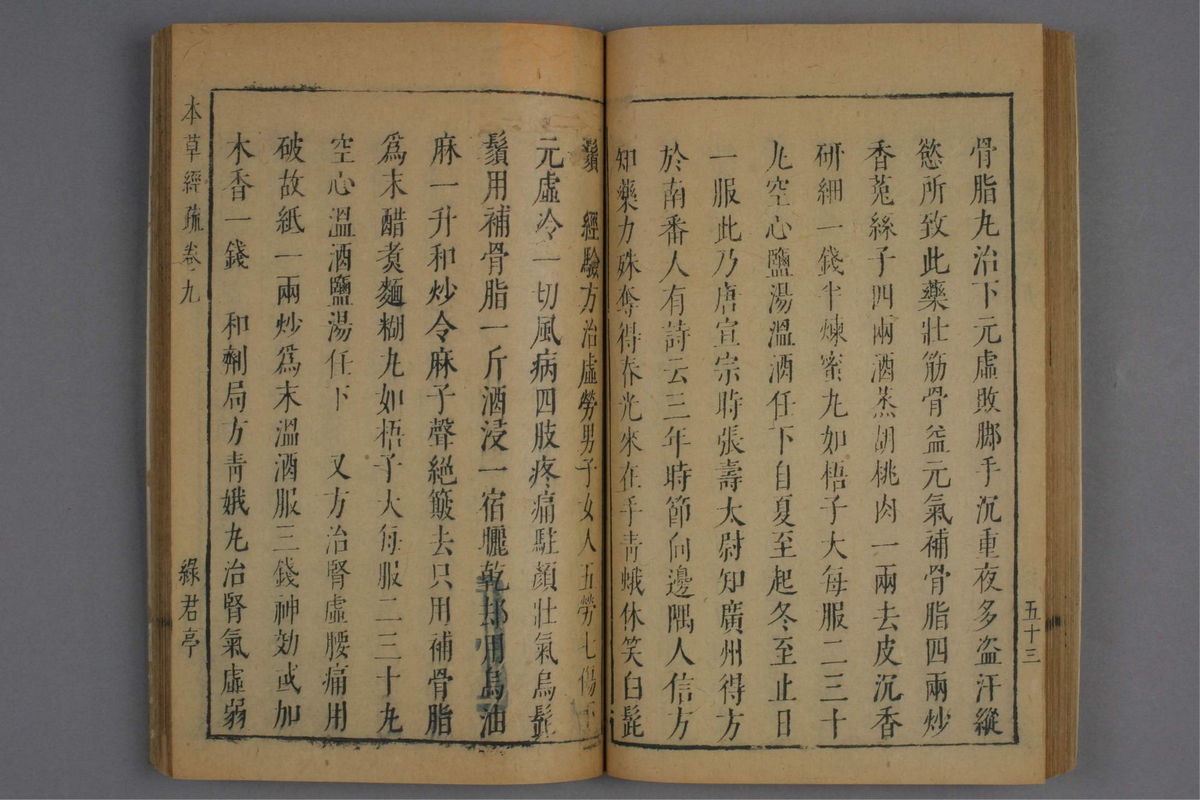 骨脂丸治下元虛敗脚手沉重夜多盜汗縱
慾所致此藥壯筋骨益元氣補骨脂四兩炒
香菟絲子四兩酒蒸胡桃肉一兩去皮沉香
研細一錢半煉蜜丸如梧子大每服二三十
丸空心鹽湯溫酒任下自夏至起冬至止日
一服此乃唐宣宗時張壽太尉知廣州得方
於南番人有詩云三年時節向邊隅人信方
知藥力殊奪得春光來在手青蛾休笑白髭
五十三
鬚 經驗方治虛勞男子女人五勞七傷下
元虛冷一切風病四肢疼痛駐顏壯氣烏髭
鬚用補骨脂一斤酒浸一宿曬乾却用烏油
麻一升和炒令麻子聲絕簸去只用補骨脂
爲末醋煑麵糊丸如梧子大每服二三十丸
空心溫酒鹽湯任下 又方治腎虛腰痛用
破故紙一兩炒爲末溫酒服三錢神効或加
木香一錢 和劑局方青娥丸治腎氣虛弱
本草經疏卷九
綠君亭